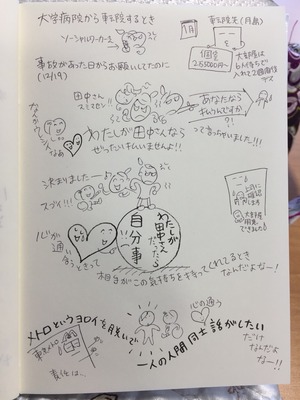 大学病院から転院するとき
ソーシャルワーカーさん
1月
転院先(月島)
個室
26500円〜
大部屋は
6人待ちで
入れて2週間後
事故があった日からお願いしてたのに
(12/19)
田中さん
スミマセン!!
あなたなら
払うんですか
?!
わたしが田中さんなら
ぜったい払いませんよ!!
って言っちゃいました!!!
決まりましたー
スゴイ!!!
大部屋
用意
できました
心が通い
合うときって
自分事
わたしが
田中さん
だったら
相手がこの気持ちを持ってくれてるとき
なんだよなー!
メトロというヨロイを脱いで
心の通う
一人の人間同士話がしたい
だけ
なんだよ
なー!!
東京メトロ
責任は、